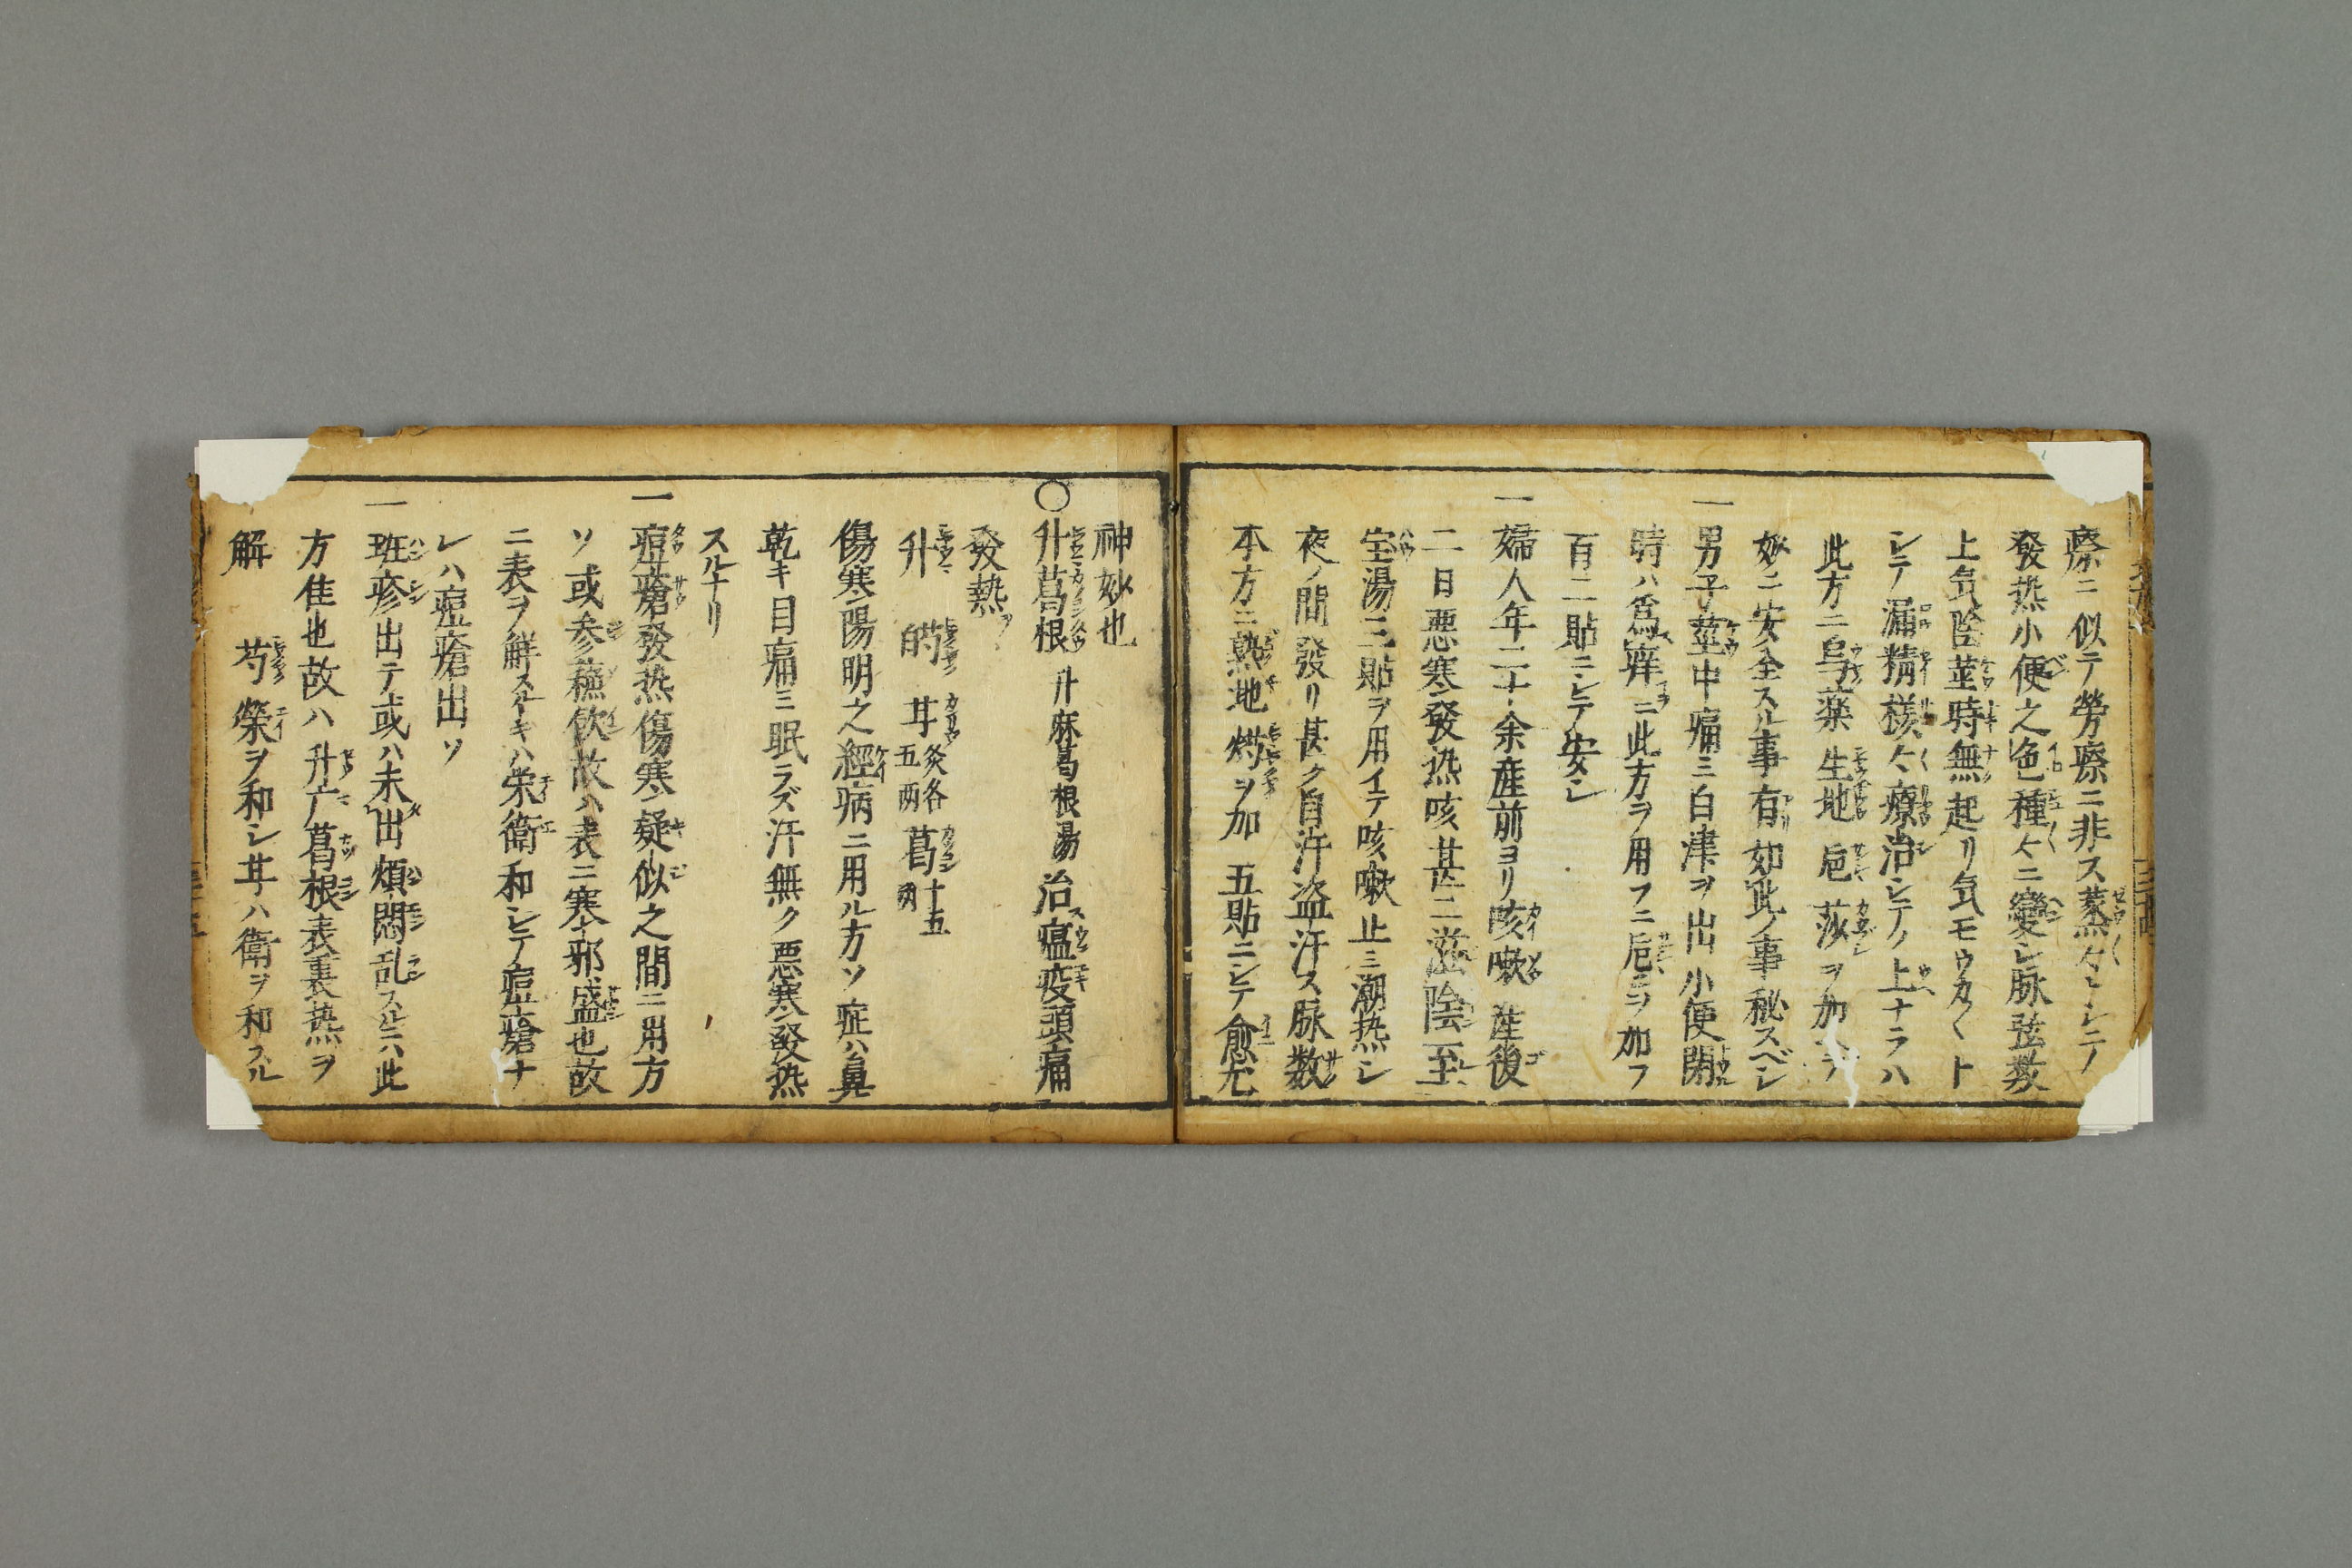 瘵ニ似テ勞瘵ニ非ス蒸々トシテ
發热小便之色種々ニ變シ脉弦数
上気陰莖時無起リ気モウカ〱ト
シテ漏精様々療治シテノ上ナラハ
此方ニ烏薬生地巵莎ヲ加テ
妙ニ安全スル事有如此ノ事秘スベシ
一男子莖中痛ミ白津ヲ出小便閉
時ハ為痒ニ此方ヲ用フニ巵ヲ加フ
百二貼ニシテ安シ
一婦人年二十余産前ヨリ咳嗽産後
二日悪寒發热咳甚ニ滋陰至
宝湯三貼ヲ用イテ咳嗽止ミ潮热シ
夜ノ間發リ甚ク自汗盗汗ス脉数
本方ニ熟地芍ヲ加五貼ニシテ愈尤
神妙也
〇升葛根 升麻葛根湯治瘟疫頭痛
發熱
升 芍 甘炙各五両 葛十五両
傷寒陽明之經病ニ用ル方ソ症ハ鼻
乾キ目痛ミ眠ラズ汗無ク悪寒發热
スルナリ
一痘瘡發热傷寒疑似之間ニ用方
ソ或参蘓飲故ハ表ニ寒邪盛也故
ニ表ヲ解スルキハ栄衛和シテ痘瘡ナ
レハ痘瘡出ソ
一班疹出テ或ハ未出煩悶乱スルニハ此
方佳也故ハ升广葛根表裏热ヲ
解 芍榮ヲ和シ甘ハ衛ヲ和スル